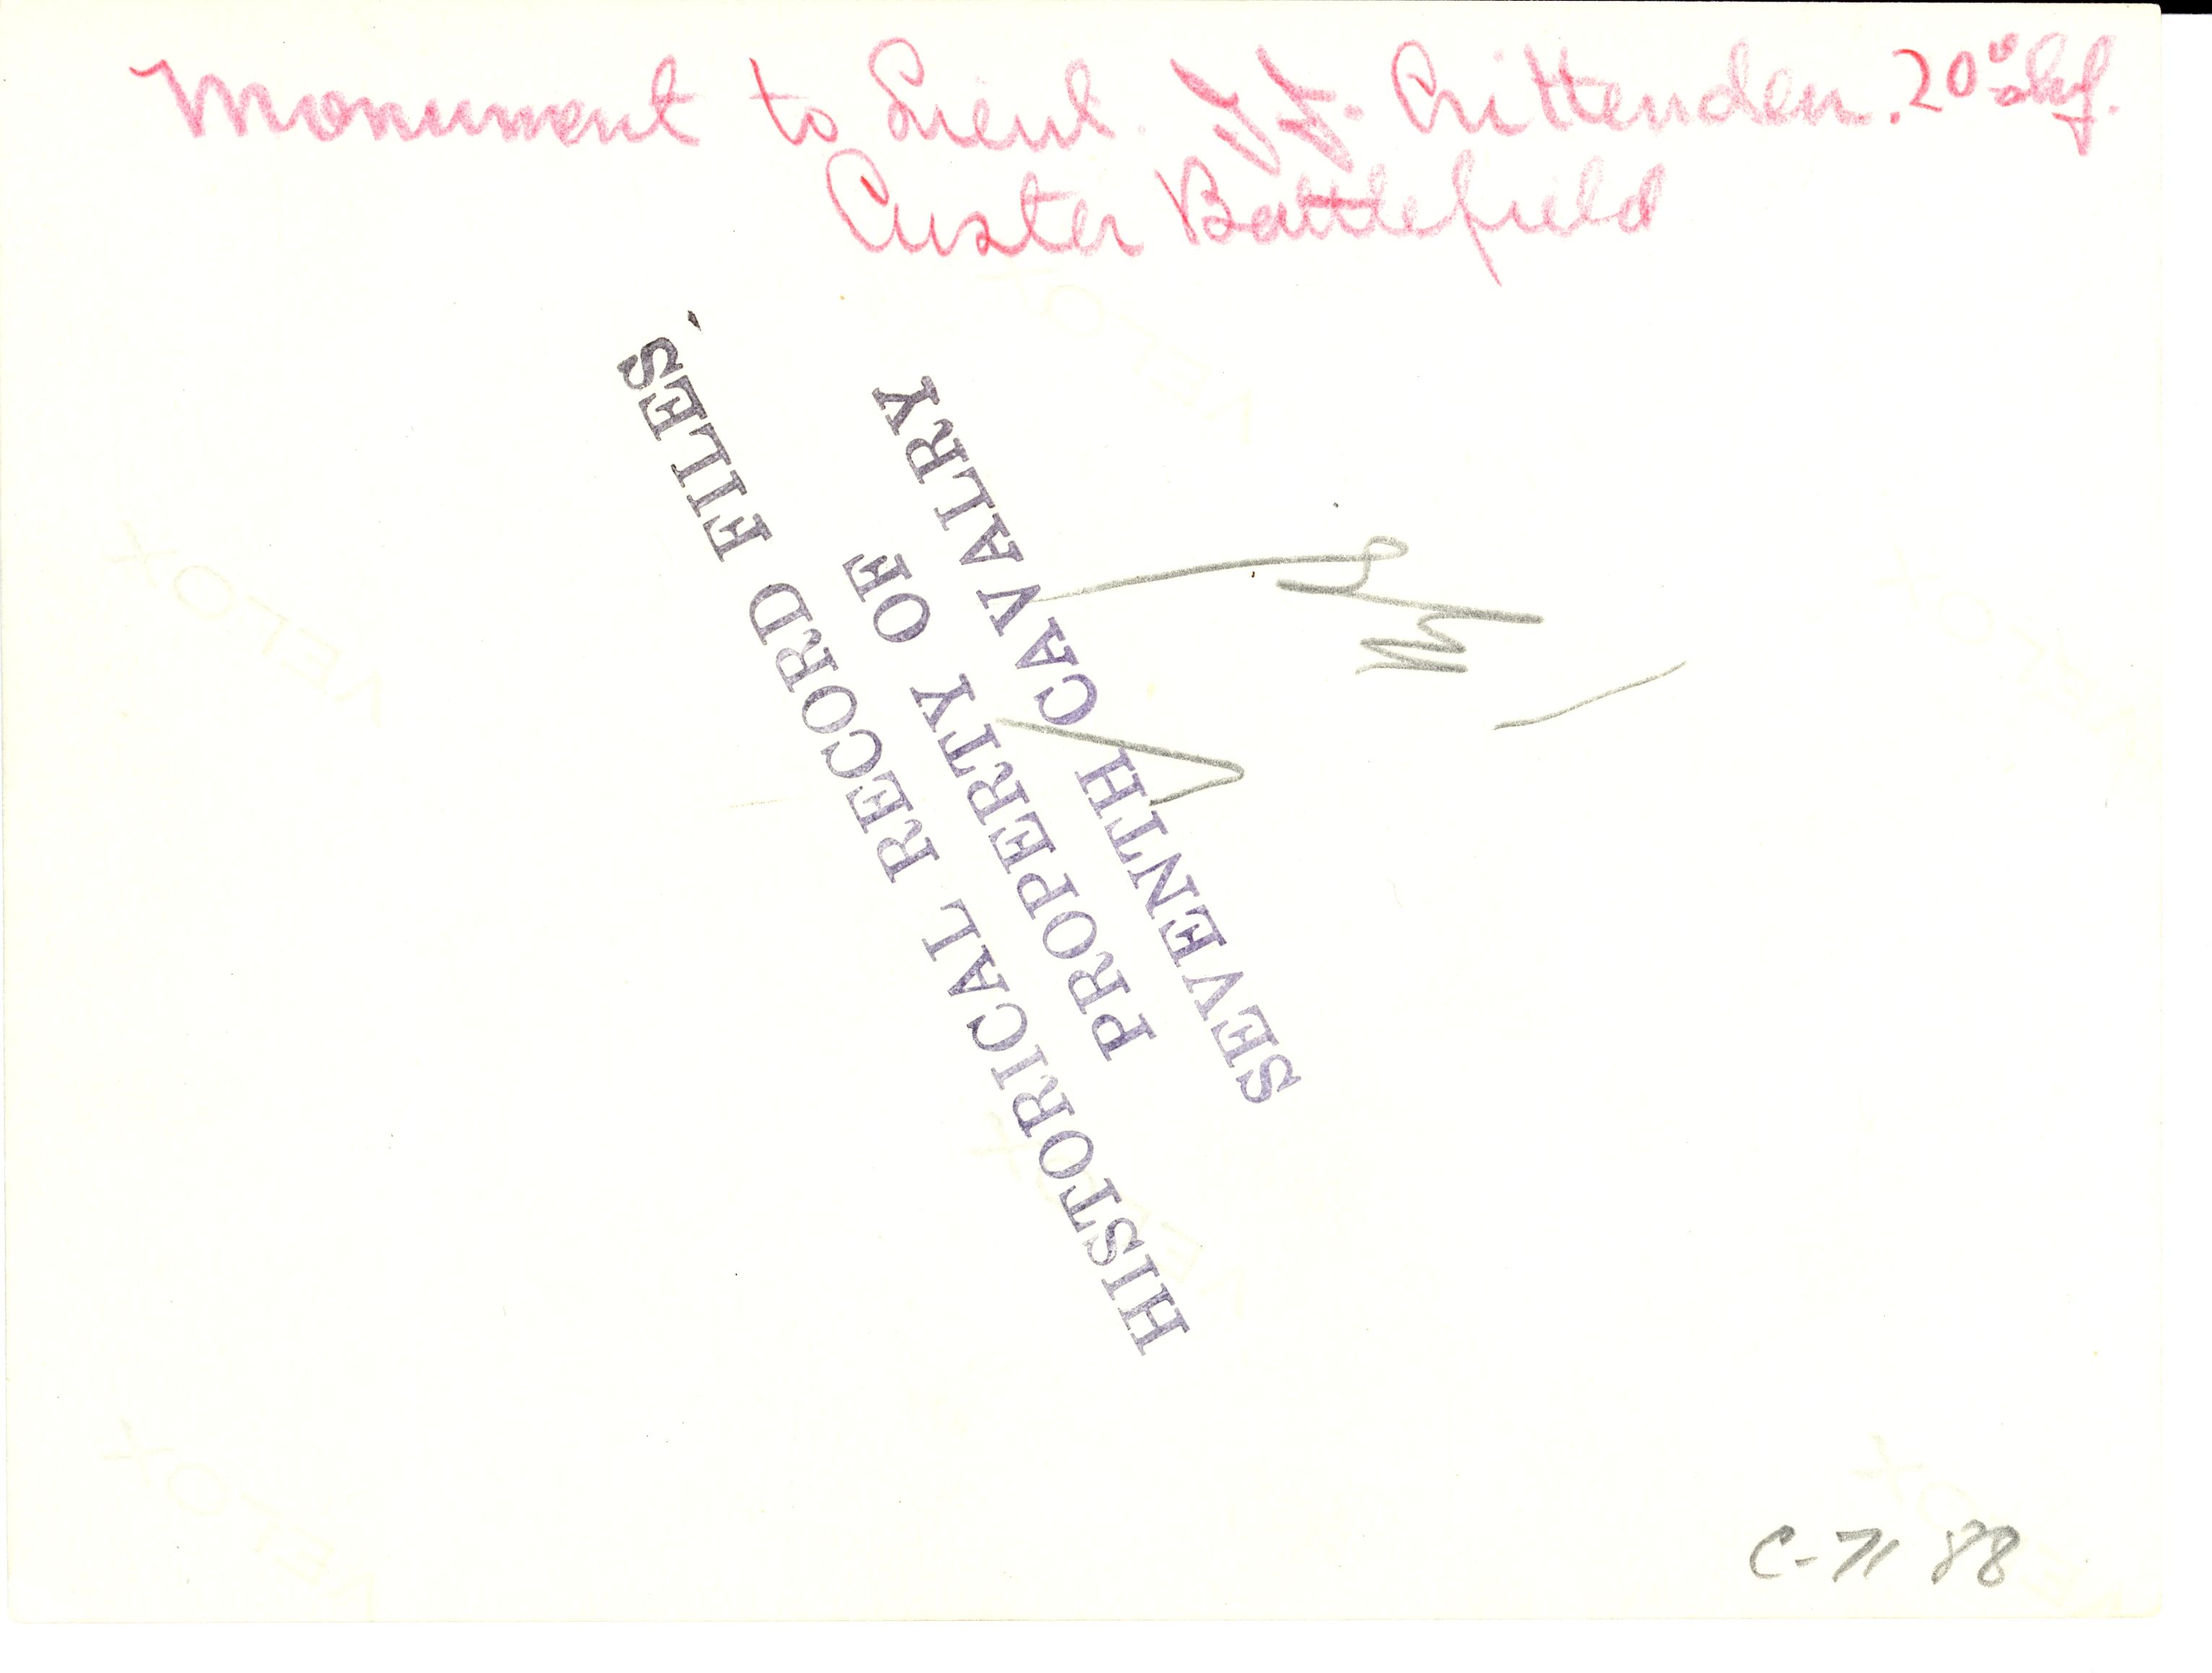 Monument to Lieut. J.J. Crittenden. 20th Inf.
Custer Battlefield
HISTORICAL RECORD FILES
PROPERTY OF
SEVENTH CAVALRY
VELOX
VELOX
VELOX
VELOX
VELOX
VELOX
C-71 88